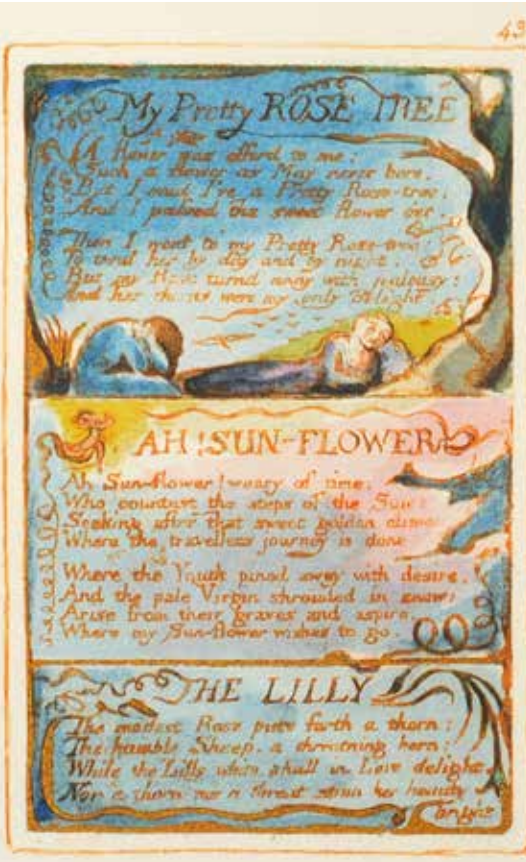 43
My Pretty ROSE TREE
A flower was offerd to me:
Such a flower as May never bore.
But I said I've a Pretty Rose-tree,
And I passed the sweet flower o'er.
Then I went to my Pretty Rose-tree:
To tend her by day and by night.
But my Rose turnd away with jealousy:
And her thorns were my only delight.
AH! SUN-FLOWER
Ah Sun-flower! weary of time,
Who countest the steps of the Sun:
Seeking after that sweet golden clime
Where the travellers journey is done.
Where the Youth pined away with desire,
And the pale Virgin shrouded in snow:
Arise from their graves and aspire,
Where my Sun-flower wishes to go.
THE LILLY
The modest Rose puts forth a thorn:
The humble Sheep, a threatning horn:
While the Lilly white, shall in Love delight,
Nor a thorn nor a threat stain her beauty
bright